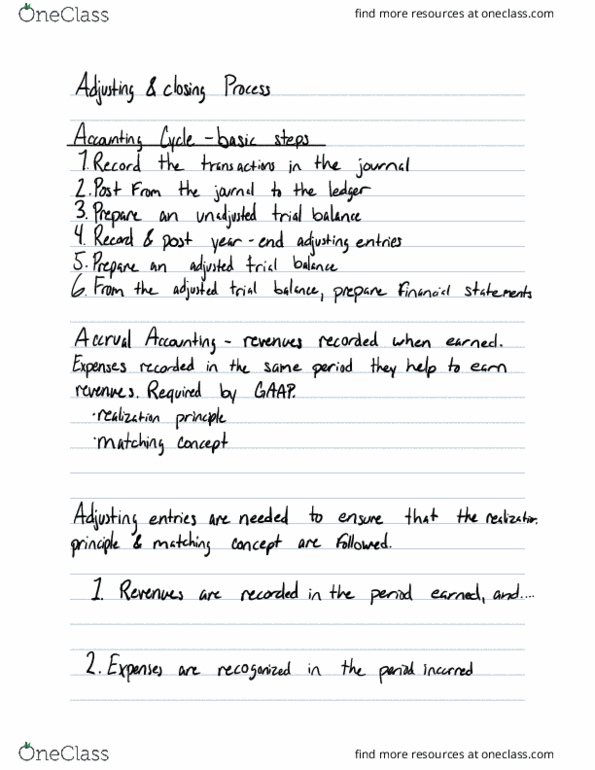 OneClass
find more resources at oneclass.com
Adjusting & closing Process
Accounting Cycle - basic steps
1. Record the transactions in the journal
2. Post From the journal to the ledger
3. Prepare an unadjusted trial balance
4. Record & post year-end adjusting entries
5. Prepare an adjusted trial balance
6. From the adjusted trial balance, prepare Financial statements
Accrual Accounting - revenues recorded when earned.
Expenses recorded in the same period they help to earn
revenues. Required by GAAP.
·realization principle
·matching concept
Adjusting entries are needed to ensure that the realization
principle & matching concept are followed.
1. Revenues are recorded in the period earned, and....
2. Expenses are recoganized in the period incurred
OneClass
find more resources at oneclass.com